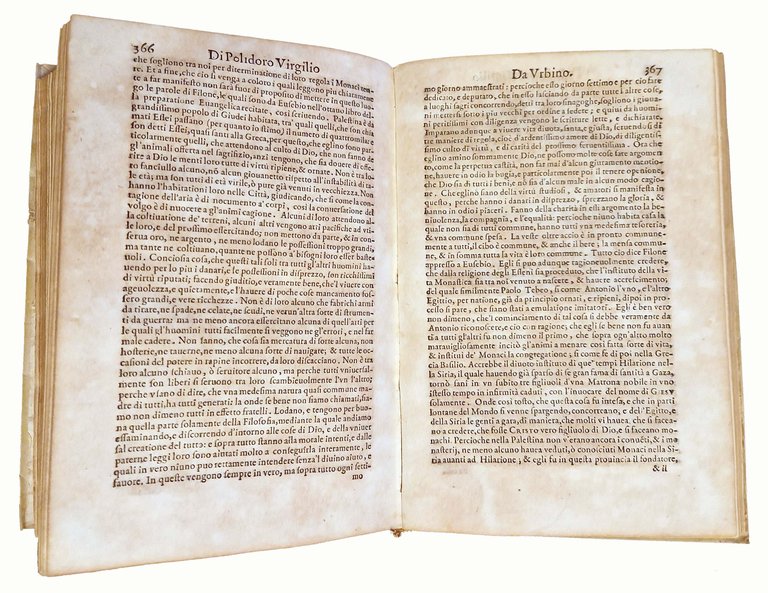 366
Di Polidoro Virgilio
che sogliono tra noi per diterminatione di loro regola i Monaci tene-
re. Et a fine, che cio si venga a coloro i quali leggono piu chiaramente
a far manifesto non sarà fuor di proposito di mettere in questo luo-
go le parole di Filone, le quali sono da Eusebio nell'ottauo libro del-
la preparatione Euangelica recitate, cosi scriuendo. Palestina è da
grandissimo popolo di Giudei habitata, tra' quali quelli, che son chia
mati Essei passano (per quanto io stimo) il numero di quattromila: e
son detti Essei, quasi santi alla Greca, per questo, che eglino sono par-
ticolarmente quelli, che attendono al culto di Dio, che non fanno de
gl'animali offerta nel sagrifizio, anzi tengono, che sia douere di offe-
rire a Dio le menti loro tutte di virtù ripiene, & ornate. Non è tra lo
ro fanciullo alcuno, nò alcun giouanetto rispetto all'instabilità di ta-
le età; ma son tutti di età virile, ò pure già venuti in vecchiezza. Non
hanno l'habitationi loro nelle Città, giudicando, che si come la con-
tagione dell'aria è di nocumento a' corpi, cosi la conuersatione del
volgo è di nuocere a gl'animi cagione. Alcuni di loro attendono al
la coltiuatione de' terreni, alcuni altri vengono arti pacifiche ad vti-
le loro, e del prossimo essercitando; e non mettono da parte, & in con
serua oro, ne argento, ne meno lodano le possessioni troppo grandi,
ma tante ne coltiuano, quante ne possano a' bisogni loro esser baste-
uoli. Conciosia cosa, che questi tali soli tra tutti gl'altri huomini ha-
uendo per lo piu i danari, e le possessioni in dispregio, son ricchissimi
di virtù riputati; facendo giuditio, e veramente bene, che'l viuere con
ageuolezza, e quietamente, e l'hauere di poche cose mancamento fos-
sero grandi, e vere ricchezze. Non è di loro alcuno che fabrichi armi
da tirare, ne spade, ne celate, ne scudi, ne verun'altra sorte di strumen-
ti da guerra: ma ne meno ancora essercitano alcuna di quell'arti per
le quali gl'huomini tutti facilmente si veggono ne gl'errori, e nel far
male cadere. Non sanno, che cosa sia mercatura di sorte alcuna, non
hosterie, ne tauerne, ne meno alcuna sorte di nauigate; & tutte le oc-
casioni del potere in rapine incorrere, da loro discacciano. Non è tra
loro alcuno schiauo, ò seruitore alcuno, ma perche tutti vniuersal-
mente son liberi si seruono tra loro scambieuolmente l'vn l'altro;
perche vsano di dire, che vna medesima natura quasi commune ma-
dre di tutti, ha tutti generati: la onde se bene non siamo chiamati, sia-
mo non dimeno tutti in effetto fratelli. Lodano, e tengono per buo-
na quella parte solamente della Filosofia, mediante la quale andiamo
essaminando, e discorrendo d'intorno alle cose di Dio, e della vniuer
sal creatione del tutto: e sopra tutto stanno alla morale intenti, e dalle
paterne leggi loro sono aiutati molto a conseguirla interamente, le
quali in vero niuno puo rettamente intendere senza'l diuino aiuto, e
fauore. In queste vengono sempre in vero, ma sopra tutto ogni setti-
mo
Da Vrbino.
367
mo giorno ammaestrati: percioche esso giorno settimo e per cio fare
dedicato, e deputato, che in esso lasciando da parte tutte l'altre cose,
a luoghi sagri concorrendo, detti tra loro sinagoghe, sogliono i gioua-
ni mettersi sotto i piu vecchi per ordine a sedere; e quiui da huomini
peritissimi con diligenza vengono le scritture lette, e dichiarate.
Imparano adunque a viuere vita diuota, santa, e giusta, seruendo si di
tre maniere di regola, cioè, d'ardentissimo amore di Dio, di diligen-
tissimo culto di virtù, e del prossimo feruentissima. Ora che
eglino amino sommamente Dio, ne possono molte cose fare argomen
to, come la perpetua castità, non far mai alcun giuramento mentio-
ne, hauere in odio la bugia, particolarmente poi il tenere openione,
che Dio sia di tutti i beni, nò sia d'alcun male in alcun modo cagio-
ne. Che eglino sian della virtù studiosi, & amatori si manifesta in
questo, perche hanno i danari in dispregio, sprezzano la gloria, &
hanno in odio i piaceri. Fanno della charità in essi argomento la be-
niuolenza, la compagnia, e l'equalità: percioche niuno habita casa la
quale non sia di tutti commune, hanno tutti vna medesima tesoreria,
& vna commune spesa. La veste oltre accio è in presto commune-
mente a tutti, il cibo è commune, & anche il bere; la mensa commu-
ne, & in somma tutta la vita è loro commune. Tutto cio dice Filone
appresso a Eusebio. Egli si puo adunque ragioneuolmente credere,
che dalla religione degli Esseni sia proceduto, che l'instituto della vi-
ta Monastica sia tra noi venuto a nascere, & hauere accrescimento;
del quale similmente Paolo Tebeo, si come Antonio l'vno, e l'altro
Egittio, per natione, già da principio ornati, e ripieni, dipoi in pro-
cesso si pare, che siano stati a emulatione imitatori. Egli è ben vero
non dimeno, che'l cominciamento di tal cosa si debbe veramente da
Antonio riconoscere, e cio con ragione; che egli se bene non fu auan
ti a tutti gl'altri fu non dimeno il primo, che sopra ogn'altro molto
marauigliosamente incitò gl'animi a menare così fatta sorte di vita,
& instituì de' Monaci la congregatione; si come fe di poi nella Gre-
cia Basilio. Accrebbe il diuoto instituto di que' tempi Hilarione nel
la Siria, il quale hauendo già sparso di se gran fama di santità a Gaza,
tornò sani in vn subito tre figliuoli d'vna Matrona nobile in vno
istesso tempo in infermità caduti, con l'inuocare del nome di GIESV
CRISTO. Onde cosi tosto, che questa cosa fu intesa, e che in parti
lontane del Mondo si venne spargendo, concorreano, e del'Egitto, e
della Siria le genti a gara, di maniera, che molti vi hauea, che si facea-
no a credere, che fusse CRISTO vero figliuolo di Dio, e si faceano mo-
naci. Percioche nella Palestina non v'erano ancora i conuēti, & i mo
nasterij, ne meno alcuno hauea veduti, ò conosciuti Monaci nella Si-
ria auanti ad Hilarione, & egli fu in questa prouincia il fondatore,
& il